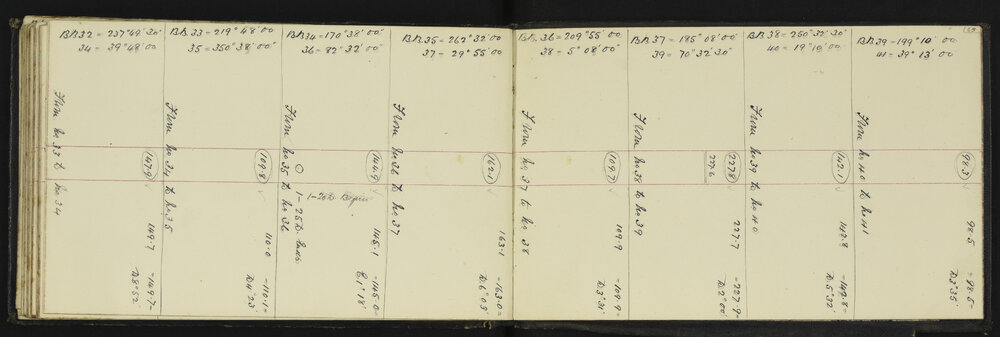 BB.32 = 237° 49' 30"
34 = 39° 48' 00
From No 33 to No 34
147.9
149.7 = 149.7 =
D.8° 52'
BB.33 = 219° 48' 00"
35 = 350° 38' 00"
From No 34 to No 35
109.8
110.0 = 110.1 =
D.4° 23'
BB.34 = 170° 38' 00"
36 = 82° 32' 00"
From No 35 to No 36
1-25D. Ends.
1-26D. Begins
144.9
145.1 = 145.0 =
E.1° 18'
BB.35 = 262° 32' 00
37 = 29° 55' 00
From No 36 to No 37
162.1
163.1 = 163.0 =
D.6° 05'
BB.36 = 209° 55' 00
38 = 5° 08' 00"
From No 37 to No 38
109.7
109.9 = 109.9 =
D.3° 31'
BB.37 = 185° 08' 00"
39 = 70° 32' 30"
From No 38 to No 39
227.8
227.6
227.7 = 227.9 =
D.2° 00'
BB.38 = 250° 32' 30"
40 = 19° 10' 00
From No 39 to No 40
142.1
142.8 = 142.8 =
D.5° 32'
BB.39 = 199° 10' 00
41 = 39° 13' 00
From No 40 to No 41
98.3
98.5 = 98.5 =
D.3° 35'